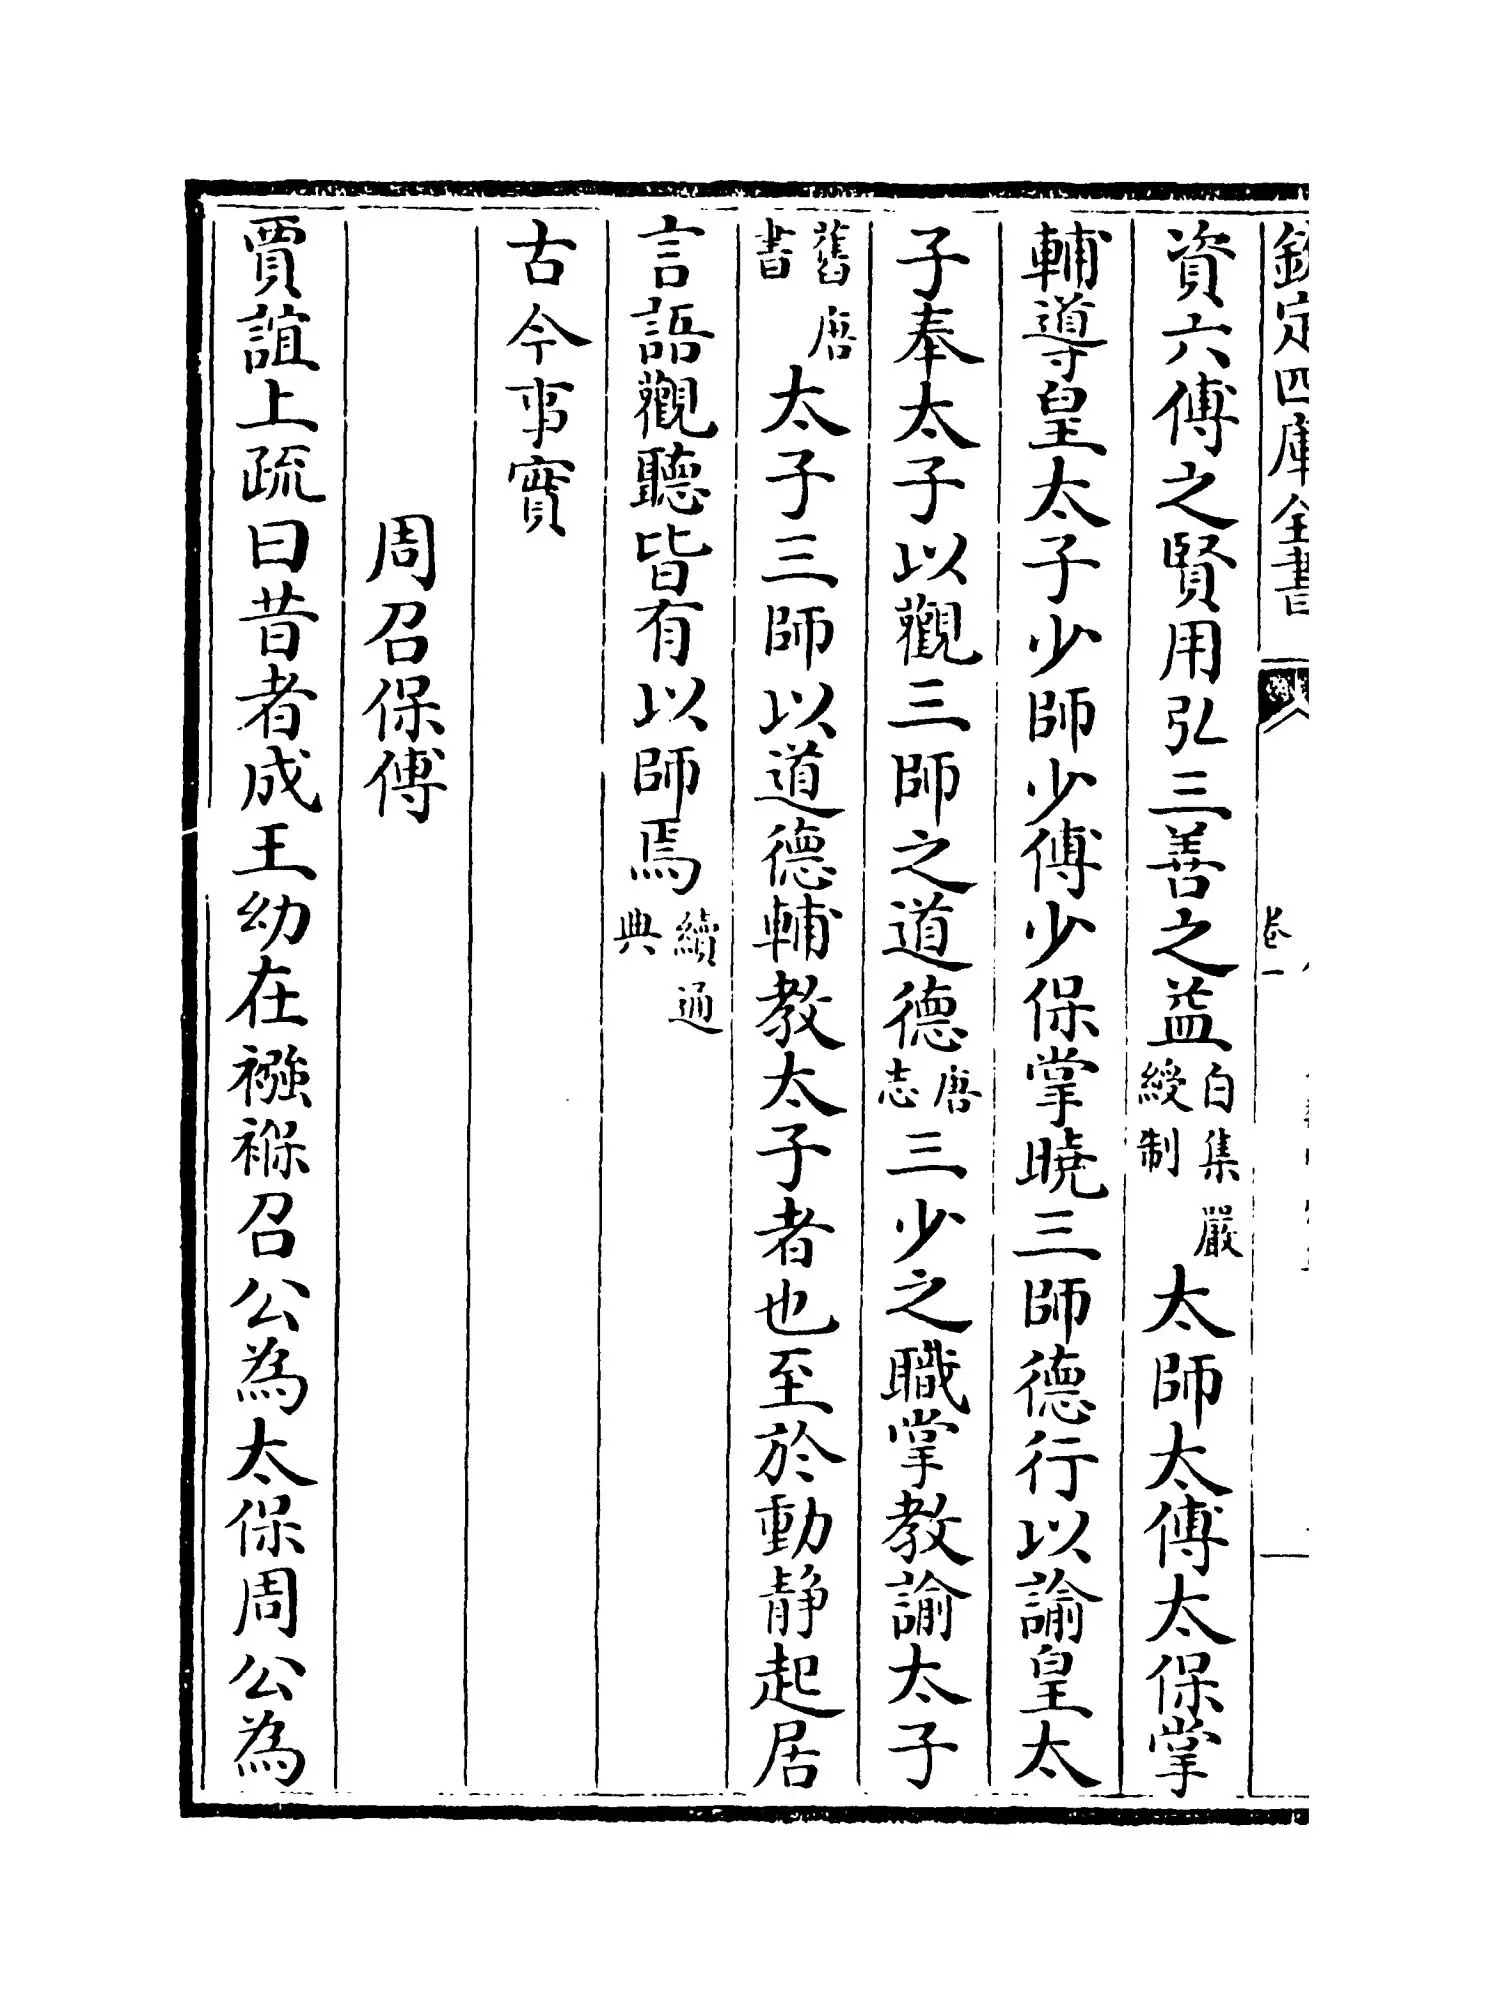 欽定四庫全書
卷一
資六傅之賢用弘三善之益白集嚴綬制太師太傅太保掌
輔導皇太子少師少傅少保掌曉三師德行以諭皇太
子奉太子以觀三師之道德唐志三少之職掌教諭太子
舊唐書太子三師以道德輔教太子者也至於動静起居
言語觀聽皆有以師焉續通典
古今事實
周召保傅
賈誼上疏曰昔者成王幼在襁褓召公為太保周公為